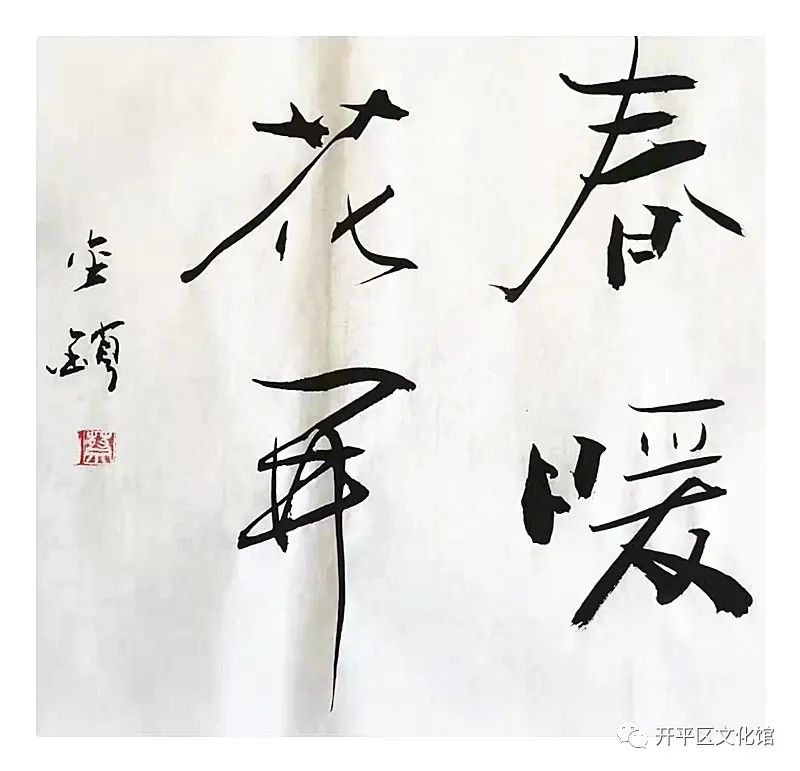 春暖
花开
开平区文化馆